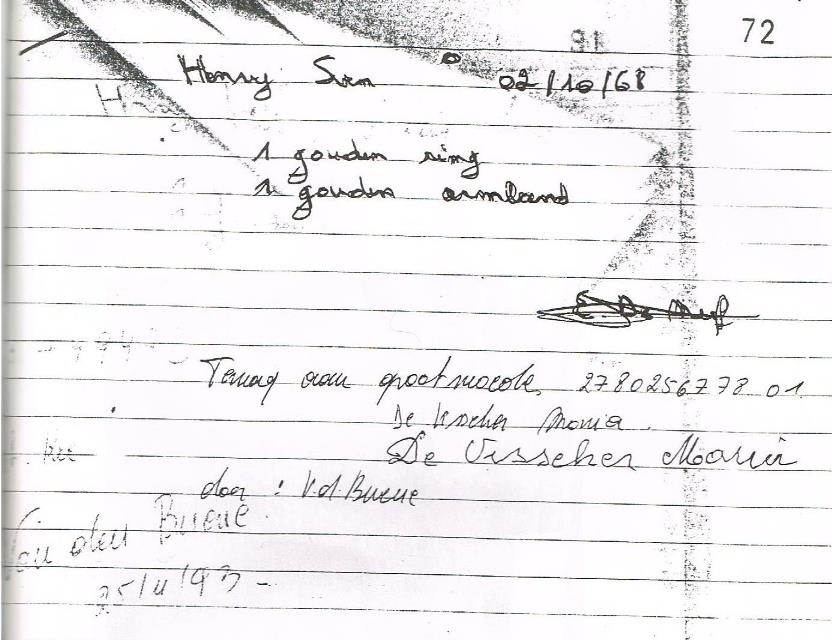 72
Henry Sven ° 02/10/68
1 gouden ring
1 gouden armband
Terug aan grootmoeder 2780256778 01
De Visscher Maria.
De Visscher Maria
door : V.d. Bueue
Van den Bueue
25/11/93 -